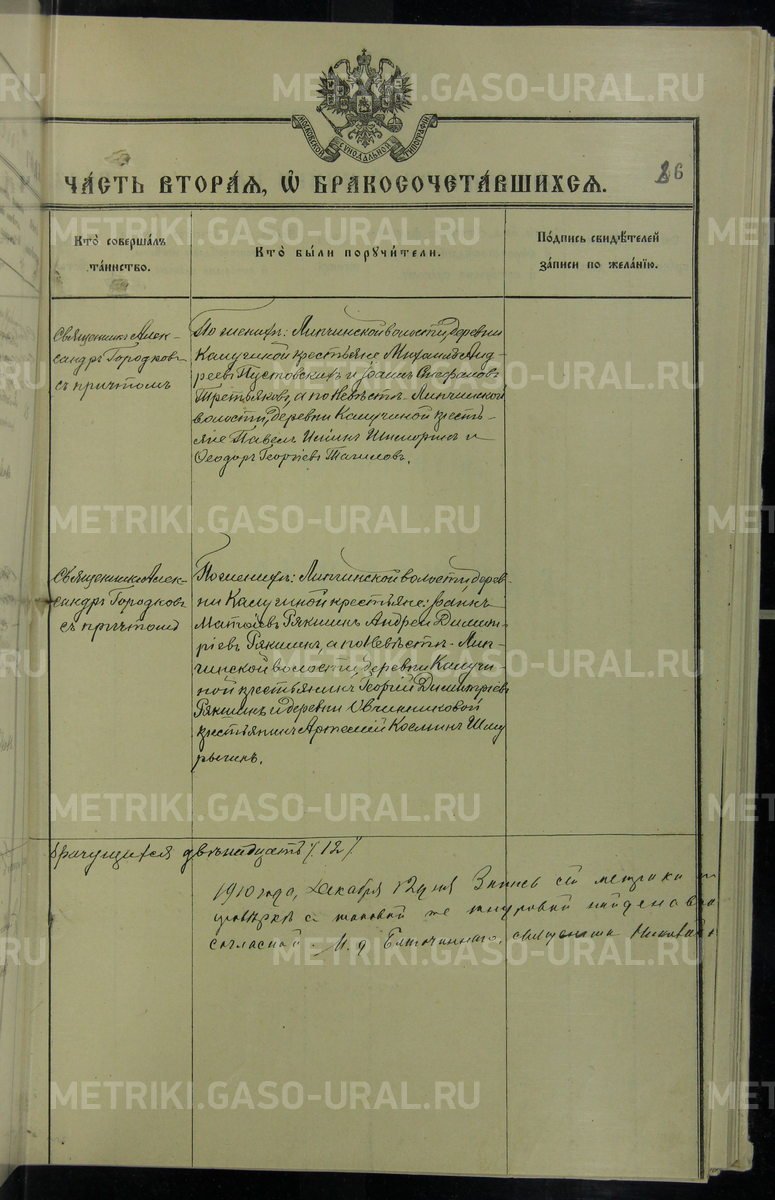 МОСКОВСКОЙ СѴНОДАЛЬНОЙ ТИПОГРАФІИ
ЧА́СТЬ ВТОРА́Я, Ѡ БРАКОСОЧЕТА́ВШИХСЯ.
86
Кто̀ соверша́лъ та́инство.
Кто̀ бы́ли поручи́тели.
По́дпись свидѣ́телей за́писи по жела́нїю.
Священникъ Алек-
сандръ Городковъ
съ причтомъ
По женихѣ: Липчинской волости, деревни
Калугиной крестьяне Михаилъ Анд-
реевъ Пустовскихъ и Іоаннъ
Третьяковъ, а по невѣстѣ - Липчинской
волости, деревни Калугиной кресть-
яне Павелъ и
Ѳеодоръ Георгіевъ Тагиловъ.
Священникъ Алек-
сандръ Городковъ
съ причтомъ
По женихѣ: Липчинской волости, дерев-
ни Калугиной крестьяне: Іоаннъ
Матѳіевъ Рякшинъ Андрей Димит-
ріевъ Рякшинъ, а по невѣстѣ - Лип-
чинской волости, деревни Калуги-
ной крестьянинъ Георгій Димитріевъ
Рякшинъ и деревни Овчинниковой
крестьянинъ Артемій Косминъ Шму
рыгинъ.
брачущихся двѣнадцать /12/
1910 года, Декабря 12 дня Запись сей метрики
провѣркѣ съ таковой же шнуровой найдена
согласной. И. д. Благочиннаго, священникъ Николай
METRIKI.GASO-URAL.RU